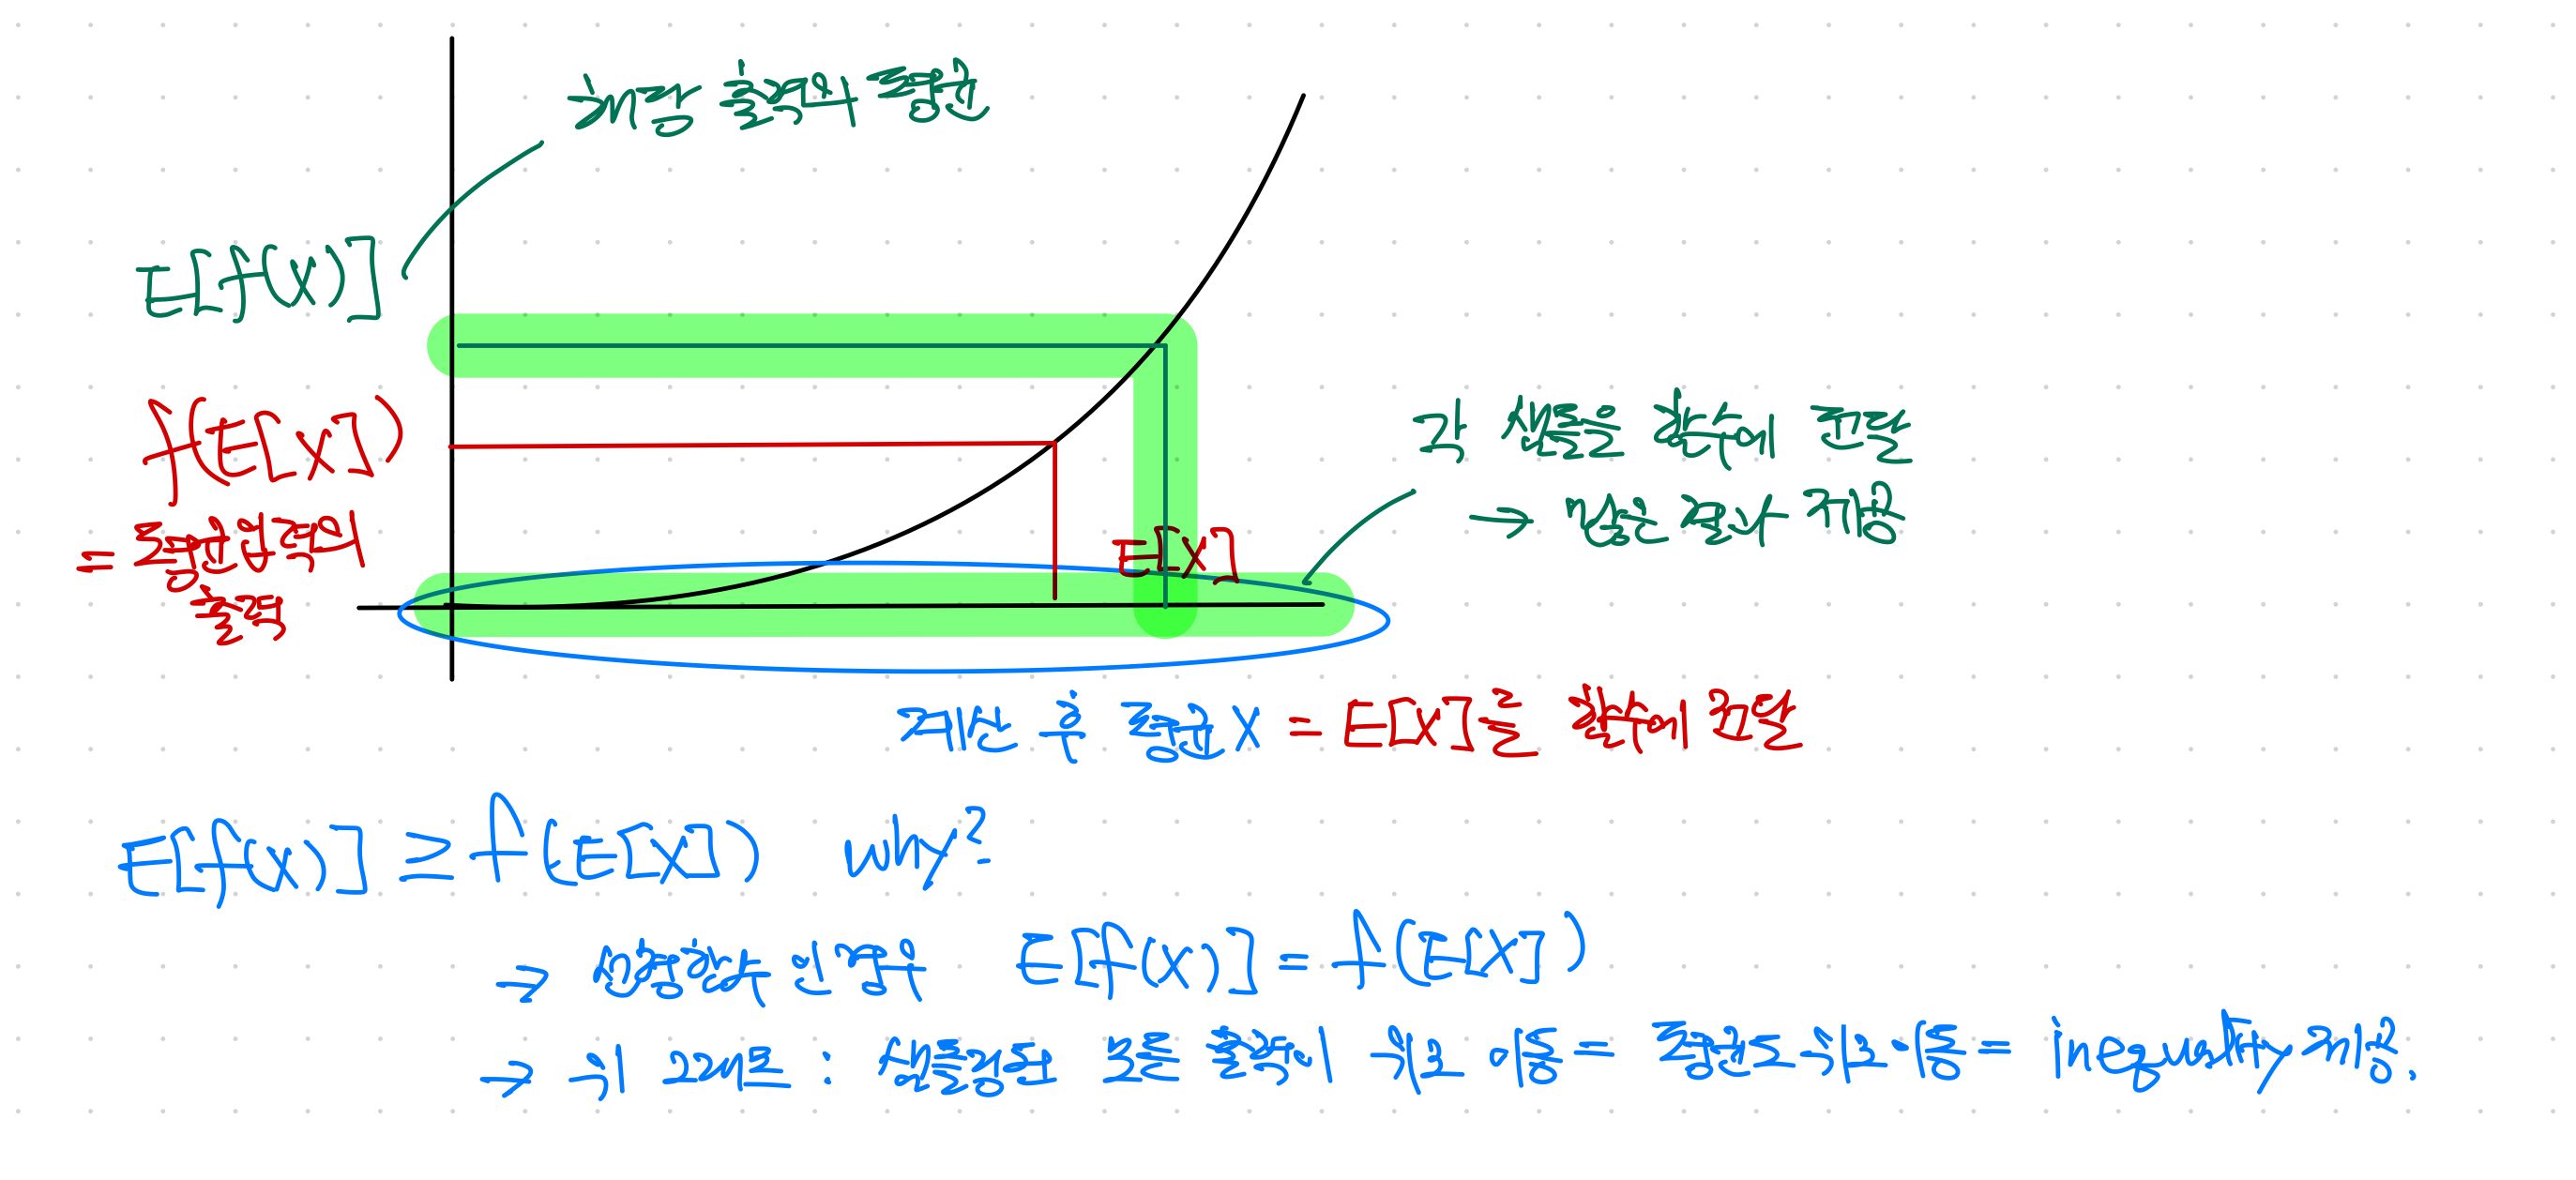 해당 출력의 평균
E[f(X)]
f(E[X])
= 평균입력의
출력
각 샘플을 함수에 전달
→ 많은 결과 제공
E[X]
계산 후 평균X = E[X]를 함수에 전달
E[f(X)] ≥ f(E[X]) why?
→ 선형함수인 경우 E[f(X)] = f(E[X])
→ 위 그래프 : 샘플링된 모든 출력이 위로 이동 = 평균도 위로 이동 = inequality 제공.